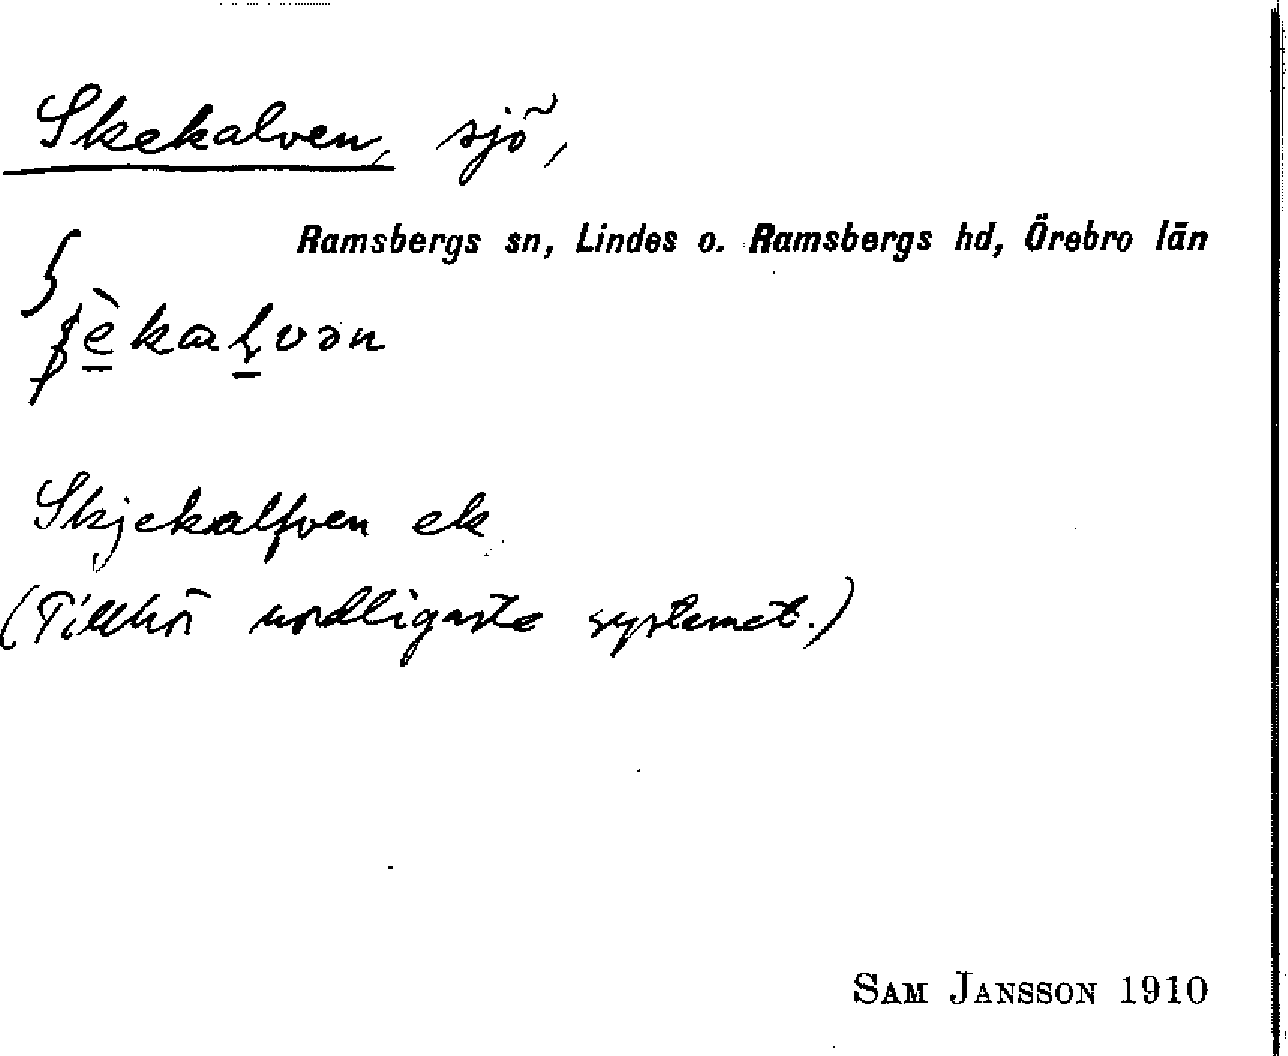 Skekalven, sjö,
Ramsbergs sn, Lindes o. Ramsbergs hd, Örebro län
Skjekalfven ek
(Tillhör nordligaste systemet.)
SAM JANSSON 1910